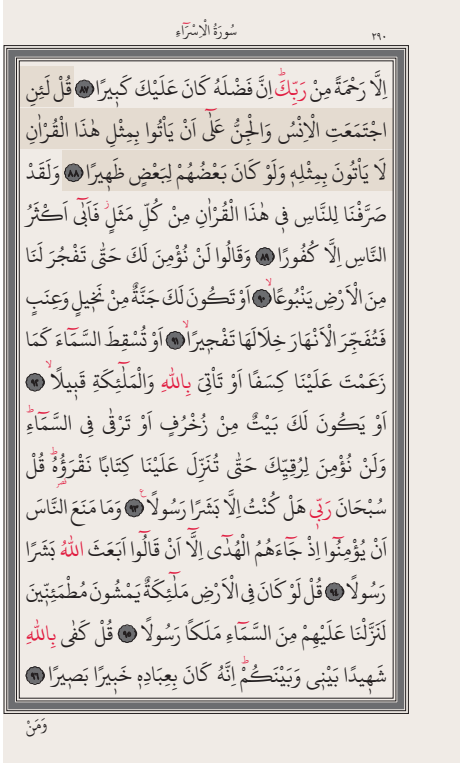 سُورَةُ الْاِسْرَٓاءِ
٢٩٠
اِلَّا رَحْمَةً مِنْ رَبِّكَۜ اِنَّ فَضْلَهُ كَانَ عَلَيْكَ كَبٖيرًا ﴿٨٧﴾ قُلْ لَئِنِ
اجْتَمَعَتِ الْاِنْسُ وَالْجِنُّ عَلٰٓى اَنْ يَأْتُوا بِمِثْلِ هٰذَا الْقُرْاٰنِ
لَا يَأْتُونَ بِمِثْلِهٖ وَلَوْ كَانَ بَعْضُهُمْ لِبَعْضٍ ظَهٖيرًا ﴿٨٨﴾ وَلَقَدْ
صَرَّفْنَا لِلنَّاسِ فٖي هٰذَا الْقُرْاٰنِ مِنْ كُلِّ مَثَلٍؗ فَاَبٰٓى اَكْثَرُ
النَّاسِ اِلَّا كُفُورًا ﴿٨٩﴾ وَقَالُوا لَنْ نُؤْمِنَ لَكَ حَتّٰى تَفْجُرَ لَنَا
مِنَ الْاَرْضِ يَنْبُوعًاۙ ﴿٩٠﴾ اَوْ تَكُونَ لَكَ جَنَّةٌ مِنْ نَخٖيلٍ وَعِنَبٍ
فَتُفَجِّرَ الْاَنْهَارَ خِلَالَهَا تَفْجٖيرًاۙ ﴿٩١﴾ اَوْ تُسْقِطَ السَّمَٓاءَ كَمَا
زَعَمْتَ عَلَيْنَا كِسَفًا اَوْ تَأْتِيَ بِاللّٰهِ وَالْمَلٰٓئِكَةِ قَبٖيلًاۙ ﴿٩٢﴾
اَوْ يَكُونَ لَكَ بَيْتٌ مِنْ زُخْرُفٍ اَوْ تَرْقٰى فِي السَّمَٓاءِۜ
وَلَنْ نُؤْمِنَ لِرُقِيِّكَ حَتّٰى تُنَزِّلَ عَلَيْنَا كِتَابًا نَقْرَؤُ۬هُۜ قُلْ
سُبْحَانَ رَبّٖي هَلْ كُنْتُ اِلَّا بَشَرًا رَسُولًا۟ ﴿٩٣﴾ وَمَا مَنَعَ النَّاسَ
اَنْ يُؤْمِنُٓوا اِذْ جَٓاءَهُمُ الْهُدٰٓى اِلَّٓا اَنْ قَالُٓوا اَبَعَثَ اللّٰهُ بَشَرًا
رَسُولًا ﴿٩٤﴾ قُلْ لَوْ كَانَ فِي الْاَرْضِ مَلٰٓئِكَةٌ يَمْشُونَ مُطْمَئِنّٖينَ
لَنَزَّلْنَا عَلَيْهِمْ مِنَ السَّمَٓاءِ مَلَكًا رَسُولًا ﴿٩٥﴾ قُلْ كَفٰى بِاللّٰهِ
شَهٖيدًا بَيْنٖي وَبَيْنَكُمْۜ اِنَّهُ كَانَ بِعِبَادِهٖ خَبٖيرًا بَصٖيرًا ﴿٩٦﴾
وَمَنْ